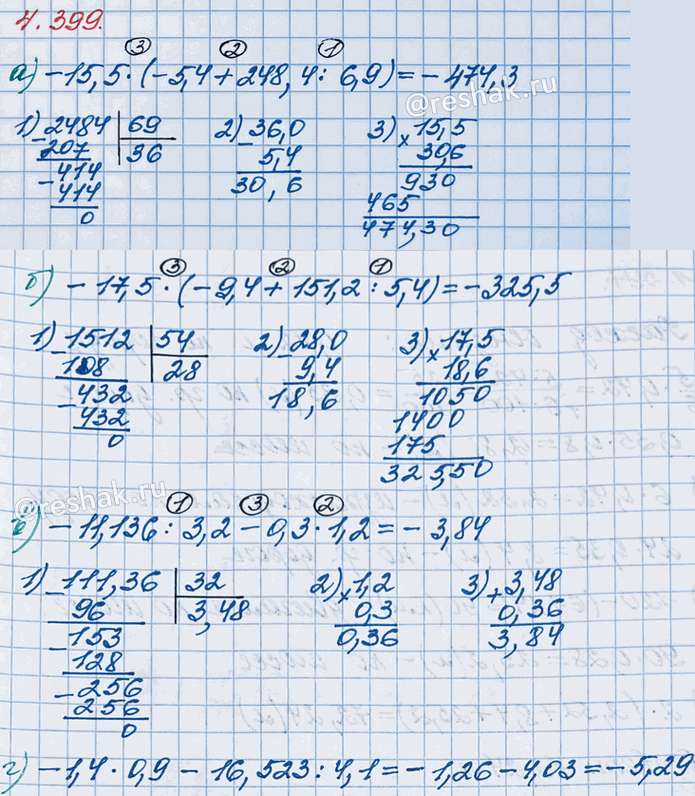 4.399.
③ ② ①
а) -15,5·(-5,4+248,4:6,9)=-474,3
@reshak.ru
1) 2484 69 2) 36,0 3) 15,5
- 207 36 - 5,4 × 30,6
414 30,6 930
- 414 465
0 474,30
③ ② ①
б) -17,5·(-9,4+151,2:5,4)=-325,5
1) 1512 54 2) 28,0 3) 17,5
- 108 28 - 9,4 × 18,6
432 18,6 1050
- 432 1400
0 175
325,50
@reshak.ru
① ③ ②
в) -11,136:3,2-0,3·1,2=-3,84
1) 111,36 32 2) 1,2 3) 3,48
- 96 3,48 × 0,3 + 0,36
153 0,36 3,84
- 128
256
- 256
0
г) -1,4·0,9-16,523:4,1=-1,26-4,03=-5,29